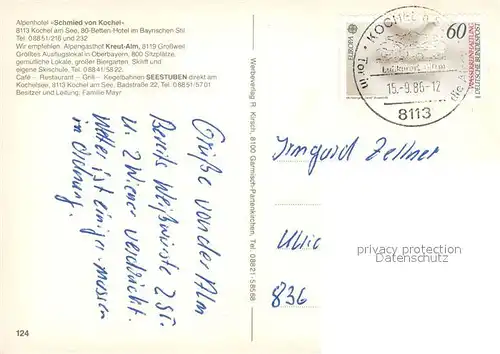 Alpenhotel «Schmied von Kochel»
8113 Kochel am See, 80-Betten-Hotel im Bayrischen Stil
Tel. 08851/216 und 232
Wir empfehlen: Alpengasthof Kreut-Alm, 8119 Großweil
Größtes Ausflugslokal in Oberbayern, 800 Sitzplätze,
gemütliche Lokale, großer Biergarten. Skilift und
eigene Skischule, Tel. 08841/5822.
Café – Restaurant – Grill – Kegelbahnen SEESTUBEN direkt am
Kochelsee, 8113 Kochel am See, Badstraße 22, Tel. 08851/5701
Besitzer und Leitung: Familie Mayr
Grüße von der Alm
Bereits Weißwürste 2 St.
u. 2 Wiener verdrückt.
Wetter ist einiger-massen
in Ordnung.
124
Werbeverlag R. Kirsch, 8100 Garmisch-Partenkirchen, Tel. 08821-58568
EUROPA
60
WASSERREINHALTUNG
DEUTSCHE BUNDESPOST
KOCHEL a. S.
15.-9.86-12
Tor in die
8113
Irmgard Zellner
836
privacy protection
watermark